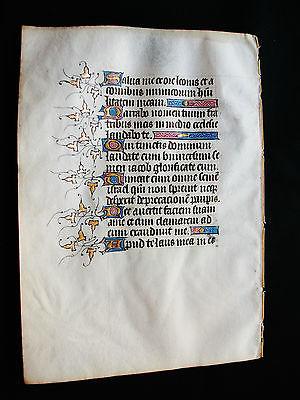 Salua me ex ore leonis et a
cornibus unicornium hui
litatem meam.
Narrabo nomen tuum fra
tribus meis in medio ecclesie
laudabo te.
Qui timetis dominum
laudate eum uniuersum se
men iacob glorificate eum
Timeat eum omne semē
israel qm̄ non spreuit neqꝫ
despexit deprecationē paup̄is
Nec auertit faciem suam
a me et cum clamarem ad
eum exaudiuit me.
Apud te laus mea in ec